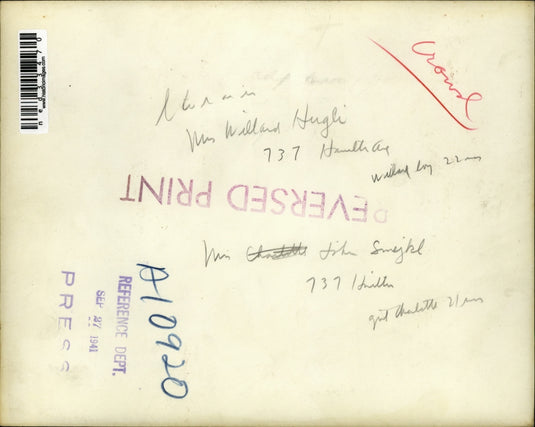 Crowd
Mrs Willard Hugli
737 Hamilton Ave
Willard boy 22 mos
REVERSED PRINT
Mrs Charlotte John Smejkl
737 Hamilton
girl Charlotte 21 mos
A10920
REFERENCE DEPT.
SEP 27 1941
PRESS
www.historicimages.com
neo33470